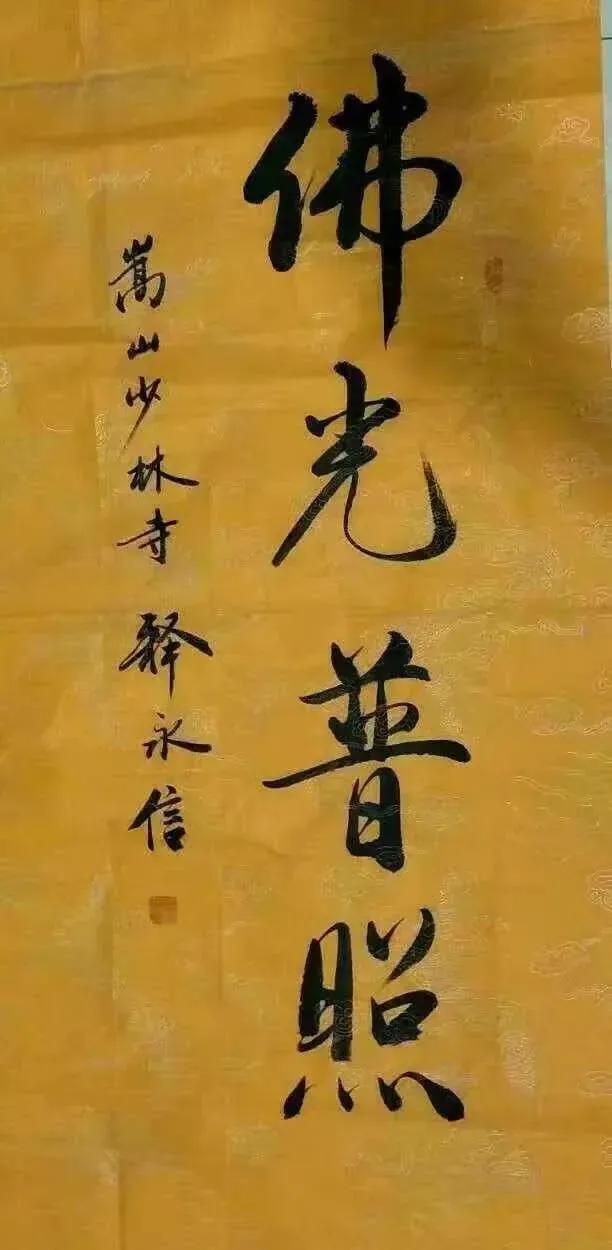 佛光普照
嵩山少林寺 释永信